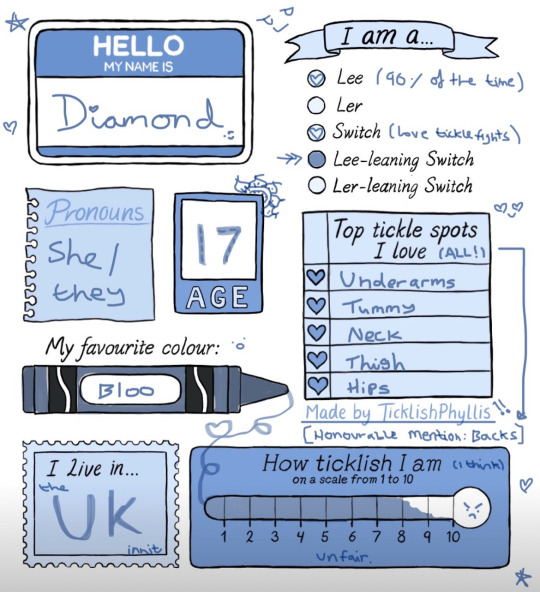 HELLO
MY NAME IS
Diamond
I am a...
Lee (90% of the time)
Ler
Switch (love tickle fights)
Lee-leaning Switch
Ler-leaning Switch
Pronouns
She/
they
17
AGE
Top tickle spots
I love (ALL!)
Underarms
Tummy
Neck
Thigh
Hips
Made by TicklishPhyllis !!
[Honourable mention: Backs]
My favourite colour:
Bloo
I live in...
the
UK
innit
How ticklish I am (I think)
on a scale from 1 to 10
1 2 3 4 5 6 7 8 9 10
unfair.